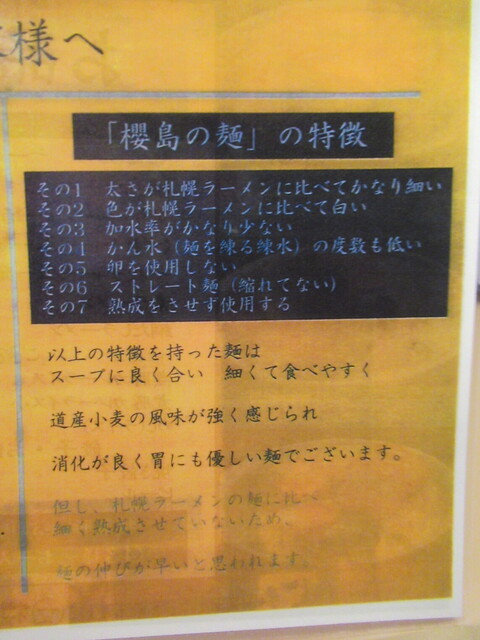 様へ
「櫻島の麺」の特徴
その1 太さが札幌ラーメンに比べてかなり細い
その2 色が札幌ラーメンに比べて白い
その3 加水率がかなり少ない
その4 かん水(麺を練る練水)の度数も低い
その5 卵を使用しない
その6 ストレート麺(縮れてない)
その7 熟成をさせず使用する
以上の特徴を持った麺は
スープに良く合い 細くて食べやすく
道産小麦の風味が強く感じられ
消化が良く胃にも優しい麺でございます。
但し、札幌ラーメンの麺に比べ
細く熟成させていないため、
麺の伸びが早いと思われます。